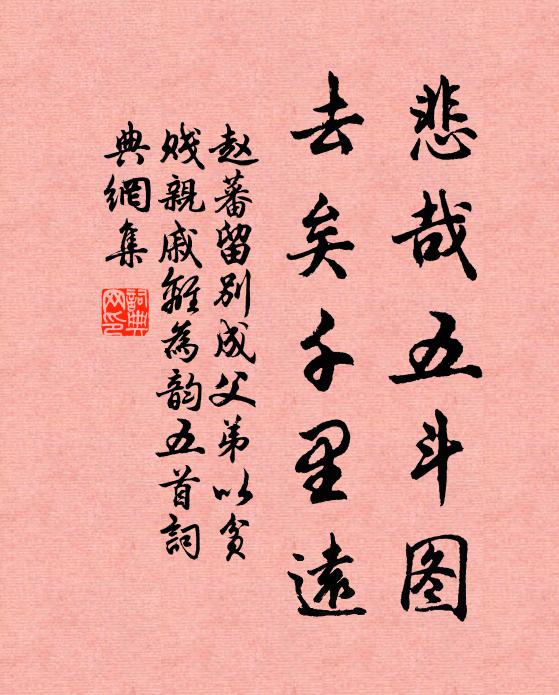 悲哉五斗图
去矣千里遠
赵蕃留别成父弟以贫
贱親戚離為韵五首詞
典網集
詞典网印